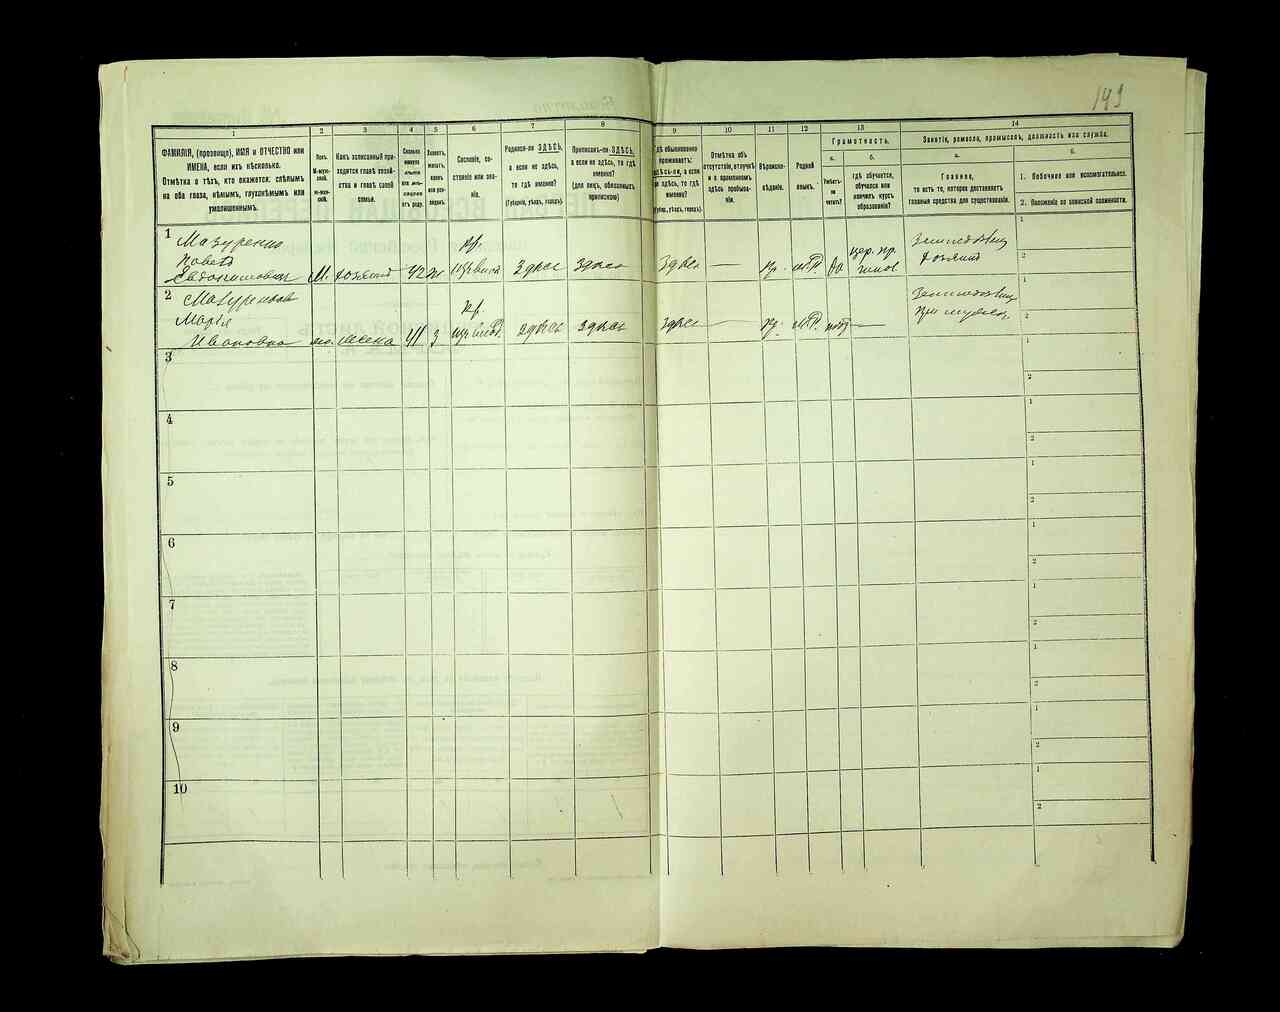 149
1
2
3
4
5
6
7
8
9
10
11
12
13
14
ФАМИЛІЯ, (прозвище), ИМЯ и ОТЧЕСТВО или
ИМЕНА, если ихъ нѣсколько.
Отмѣтка о тѣхъ, кто окажется: слѣпымъ
на оба глаза, нѣмымъ, глухонѣмымъ или
умалишеннымъ.
Полъ.
М-муж-
ской.
ж-жен-
скій.
Какъ записанный при-
ходится главѣ хозяй-
ства и главѣ своей
семьи.
Сколько
минуло
лѣтъ
или мѣ-
сяцевъ
отъ роду.
Холостъ,
женатъ,
вдовъ
или раз-
веденъ.
Сословіе, со-
стояніе или зва-
ніе.
Родился-ли ЗДѢСЬ,
а если не здѣсь,
то гдѣ именно?
(Губернія, уѣздъ, городъ).
Приписанъ-ли ЗДѢСЬ,
а если не здѣсь, то гдѣ
именно?
(для лицъ, обязанныхъ
припискою)
Гдѣ обыкновенно
проживаетъ:
здѣсь-ли, а если
не здѣсь, то гдѣ
именно?
(Губер., уѣздъ, городъ).
Отмѣтка объ
отсутствіи, отлучкѣ
и о временномъ
здѣсь пребыва-
ніи.
Вѣроиспо-
вѣданіе.
Родной
языкъ.
Грамотность.
а.
б.
Умѣетъ-
ли
читать?
гдѣ обучается,
обучался или
кончилъ курсъ
образованія?
Занятіе, ремесло, промыселъ, должность или служба.
а.
б.
Главное,
то есть то, которое доставляетъ
главныя средства для существованія.
1. Побочное или вспомогательное.
2. Положеніе по воинской повинности.
1
Мазуренко
Павелъ
Евдокимовичъ
М.
хозяинъ
42
ж
кр.
Здѣсь
Здѣсь
Здѣсь
—
пр.
м.Р.
да
цер. пр.
Хозяинъ
1
2
2
Марія
Ивановна
ж.
жена
41
з
кр.
здѣсь
здѣсь
здѣсь
—
пр.
м.Р.
нѣтъ
—
1
2
3
1
2
4
1
2
5
1
2
6
1
2
7
1
2
8
1
2
9
1
2
10
1
2